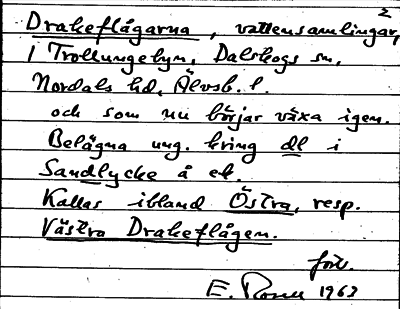 2
Drakeflågarna, vattensamlingar,
i Trollungebyn, Dalskogs sn,
Nordals hd, Älvsb. l.
och som nu börjar växa igen.
Belägna ung. kring dl i
Sandlycke å ek.
Kallas ibland Östra, resp.
Västra Drakeflågen.
forts.
E. 1963